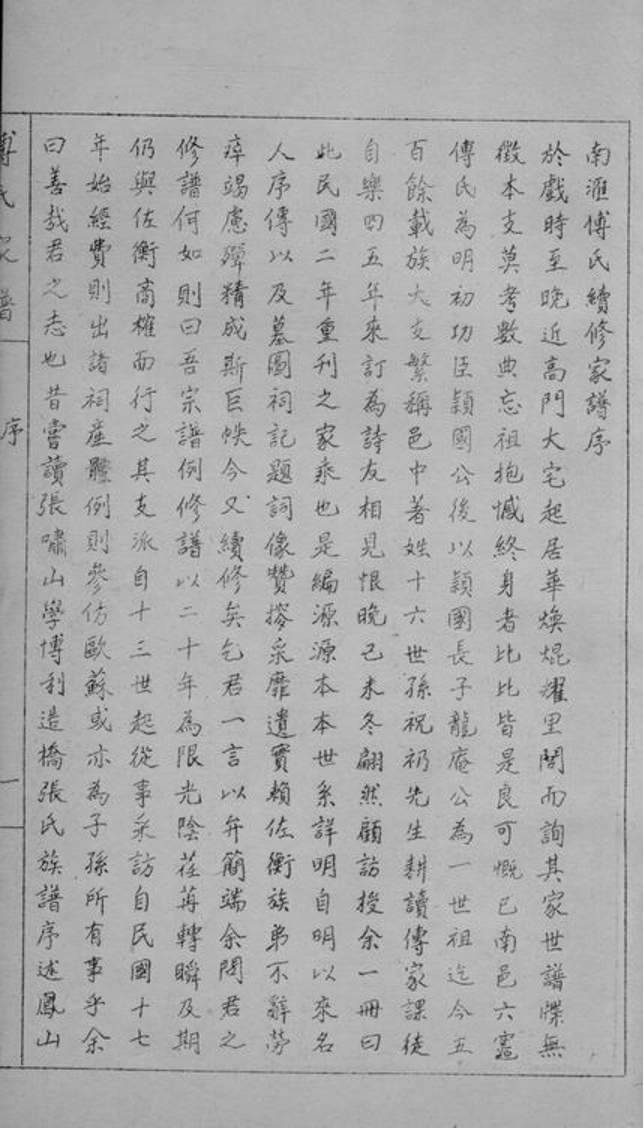 南滙傅氏續修家譜序
於戲時至晚近高門大宅起居華煥焜耀里閭而詢其家世譜牒無
徵本支莫考數典忘祖抱憾終身者比比皆是良可慨已南邑六竈
傅氏為明初功臣穎國公後以穎國長子龍庵公為一世祖迄今五
百餘載族大支繁稱邑中著姓十六世孫祝礽先生耕讀傳家課徒
自樂四五年來訂為詩友相見恨晚己未冬翩然顧訪授余一冊曰
此民國二年重刊之家乘也是編源源本本世系詳明自明以來名
人序傳以及墓圖祠記題詞像贊搜采靡遺實賴佐衡族弟不辭勞
瘁竭慮殫精成斯巨帙今又續修矣乞君一言以弁簡端余閱君之
修譜何如則曰吾宗譜例修譜以二十年為限光陰荏苒轉瞬及期
仍與佐衡商榷而行之其支派自十三世起從事采訪自民國十七
年始經費則出諸祠產體例則參仿歐蘇或亦為子孫所有事乎余
曰善哉君之志也昔嘗讀張嘯山學博利造橋張氏族譜序述鳳山
傅氏家譜
序
一